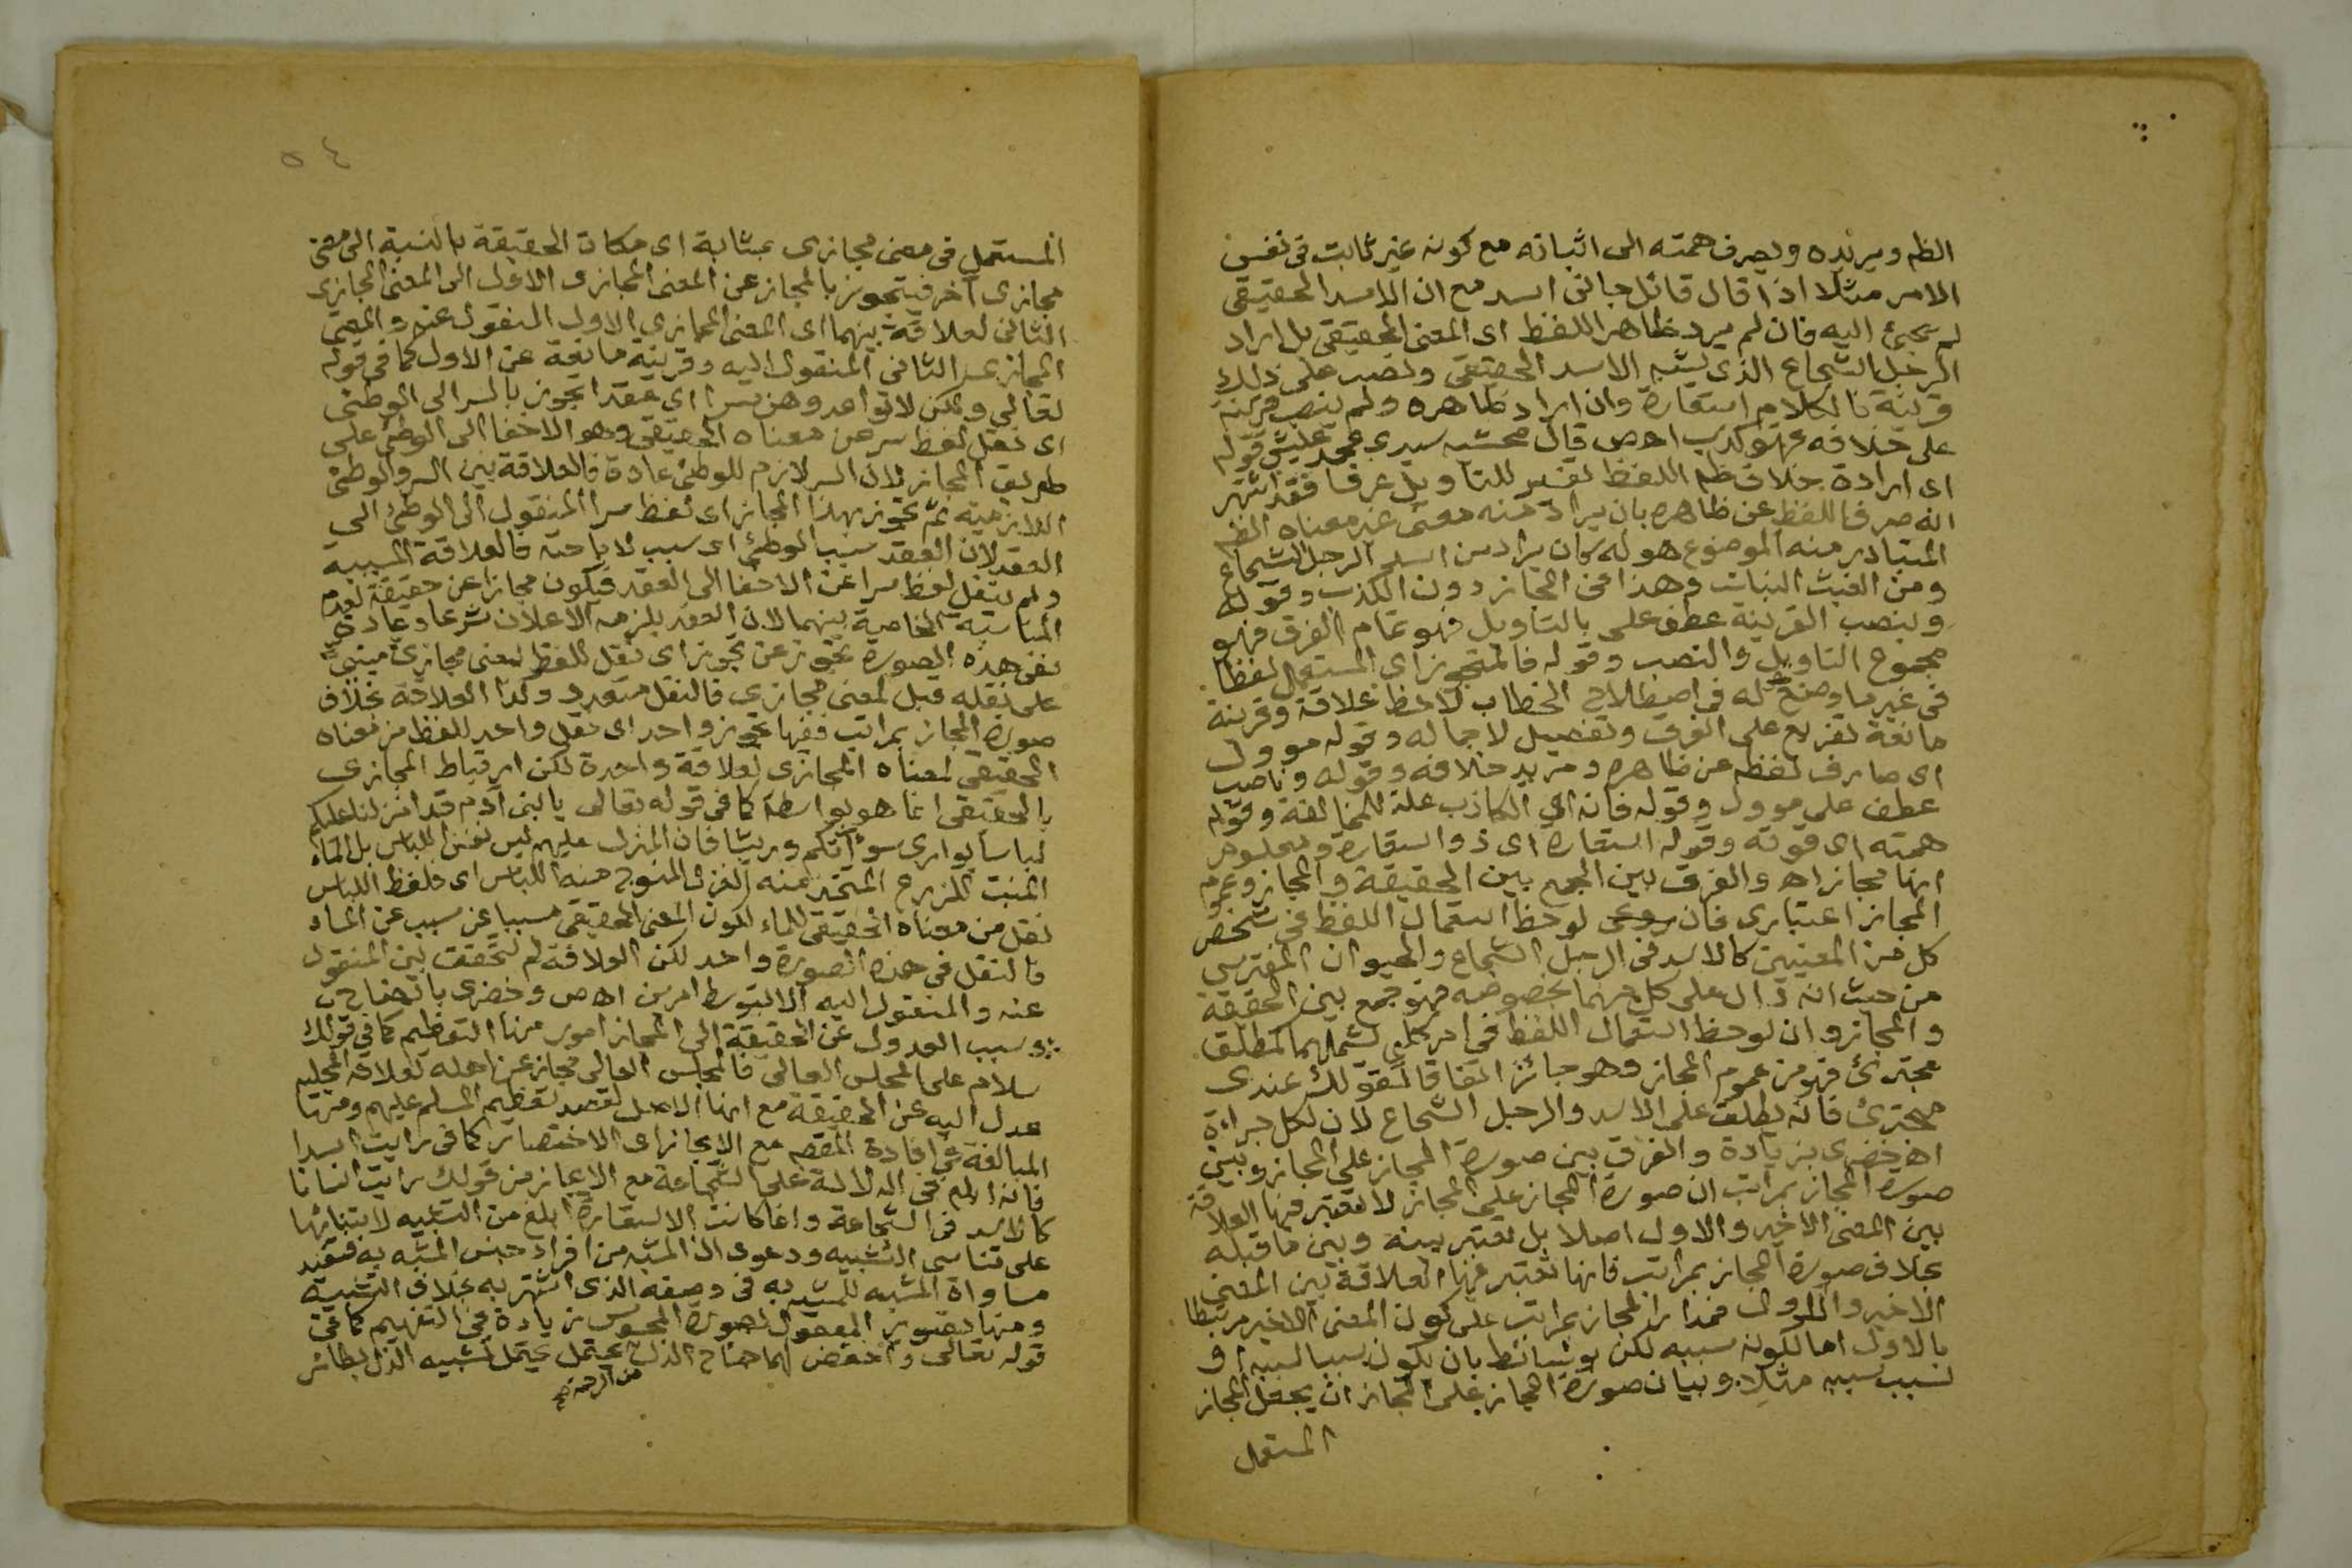 الظم ويريده ويصرف همته الى اثباته مع كونه غير ثابت فى نفس
الامر مثلا اذا قال قائل جانى اسد مع ان الاسد الحقيقى
لم يجئ اليه فان لم يرد ظاهر اللفظ اى المعنى الحقيقى بل اراد
الرجل الشجاع الذى يشبه الاسد الحقيقى ونصب على ذلك
قرينة فالكلام استعارة وان اراد ظاهره ولم ينصب قرينة
على خلافه فهو كذب اهص قال محشيه سيدى محمد عليش قوله
اى ارادة خلاف ظم اللفظ تفسير للتاويل عرفا فقد اشتهر
انه صرف اللفظ عن ظاهره بان يراد منه معنى غير معناه الظم
المتبادر منه الموضوع هو له كان يراد من اسد الرجل الشجاع
ومن الغيث النبات وهذا فى المجاز دون الكذب وقوله
وبنصب القرينة عطف على بالتاويل فهو تمام الفرق فهو
مجموع التاويل والنصب وقوله فالمتجوز اى المستعمل لفظا
فى غير ما وضع له فى اصطلاح الخطاب لاحظ علاقة وقرينة
مانعة تفريع على الفرق وتفصيل لاجماله وقوله موول
اى صارف لفظه عن ظاهره ومريد خلافه وقوله وناصب
عطف على موول وقوله فانه اى الكاذب علة للمخالفة وقوله
همته اى قوته وقوله استعارة اى ذو استعارة ومعلوم
انها مجاز اه والفرق بين الجمع بين الحقيقة والمجاز وعموم
المجاز اعتبارى فان روعى لوحظ استعمال اللفظ فى شخص
كل من المعنيين كالاسد فى الرجل الشجاع والحيوان المفترس
من حيث انه دال على كل منهما بخصوصه فهو جمع بين الحقيقة
والمجاز وان لوحظ استعمال اللفظ فى امر كلى يشملهما كمطلق
مجترئ فهو من عموم المجاز وهو جائز اتفاقا كقولك عندى
مجترئ فانه يطلق على الاسد والرجل الشجاع لان لكل جراءة
اه خضرى بزيادة والفرق بين صورة المجاز على المجاز وبين
صورة المجاز بمراتب ان صورة المجاز على المجاز لا تعتبر فيها العلاقة
بين المعنى الاخير والاول اصلا بل تعتبر بينه وبين ما قبله
بخلاف صورة المجاز بمراتب فانها تعتبر فيها العلاقة بين المعنى
الاخير والاول فمدار المجاز بمراتب على كون المعنى الاخير مرتبطا
بالاول اما لكونه سببه لكن بوسائط بان يكون سببا لسببه او
لسبب سببه مثلا وبيان صورة المجاز على المجاز ان يجعل المجاز
المستعمل
٥٤
المستعمل فى معنى مجازى بمثابة اى مكان الحقيقة بالنسبة الى معنى
مجازى آخر فيتجوز بالمجاز عن المعنى المجازى الاول الى المعنى المجازى
الثانى لعلاقة بينهما اى المعنى المجازى الاول المنقول عنه والمعنى
المجازى الثانى المنقول اليه وقرينة مانعة عن الاول كما فى قوله
تعالى ولكن لا تواعدوهن سرا اى عقدا تجوز بالسر الى الوطئ
اى نقل لفظ سر عن معناه الحقيقى وهو الاخفا الى الوطئ على
طريق المجاز لان السر لازم للوطئ عادة فالعلاقة بين السر والوطئ
اللازمية ثم تجوز بهذا المجاز اى لفظ سرا المنقول الى الوطئ الى
العقد لان العقد سبب الوطئ اى سبب لاباحته فالعلاقة المسببية
ولم ينقل لفظ سرا عن الاخفا الى العقد فيكون مجازا عن حقيقة لعدم
المناسبة الخاصية بينهما لان العقد يلزمه الاعلان شرعا وعادة
ففى هذه الصورة تجوز عن تجوز اى نقل للفظ لمعنى مجازى مبنى
على نقله قبل لمعنى مجازى فالنقل متعدد وكذا العلاقة بخلاف
صورة المجاز بمراتب ففيها تجوز واحد اى نقل واحد للفظ من معناه
الحقيقى لمعناه المجازى لعلاقة واحدة لكن ارتباط المجازى
بالحقيقى انما هو بواسطة كما فى قوله تعالى يا بنى آدم قد انزلنا عليكم
لباسا يوارى سوآتكم وريشا فان المنزل عليهم ليس نفس اللباس بل الماء
المنبت للزرع المتخذ منه الغزل المنسوج منه اللباس اى فلفظ اللباس
نقل من معناه الحقيقى للماء لكون المعنى الحقيقى مسببا عن سبب عن الماء
فالنقل فى هذه الصورة واحد لكن العلاقة لم تتحقق بين المنقول
عنه والمنقول اليه الا بتوسط امرين اهص وخضرى باتضاح
وسبب العدول عن الحقيقة الى المجاز امور منها التعظيم كما فى قولك
سلام على المجلس العالى فالمجلس العالى مجاز عن اهله لعلاقة المحلية
عدل اليه عن الحقيقة مع انها الاصل لقصد تعظيم المسلم عليهم ومنها
المبالغة فى افادة المقصم مع الايجاز اى الاختصار كما فى رايت اسدا
فانه فى الدلالة على الشجاعة مع الايجاز من قولك رايت انسانا
كالاسد فى الشجاعة وانما كانت الاستعارة ابلغ من التشبيه لابتنائها
على تناسى التشبيه ودعوى ان المشبه من افراد جنس المشبه به فتفيد
مساواة المشبه للمشبه به فى وصفه الذى اشتهر به بخلاف التشبيه
ومنها تصوير المعقول بصورة المحسوس زيادة فى التفهيم كما فى
قوله تعالى واخفض لهما جناح الذل يحتمل تشبيه الذل بطائر
من الرحمة